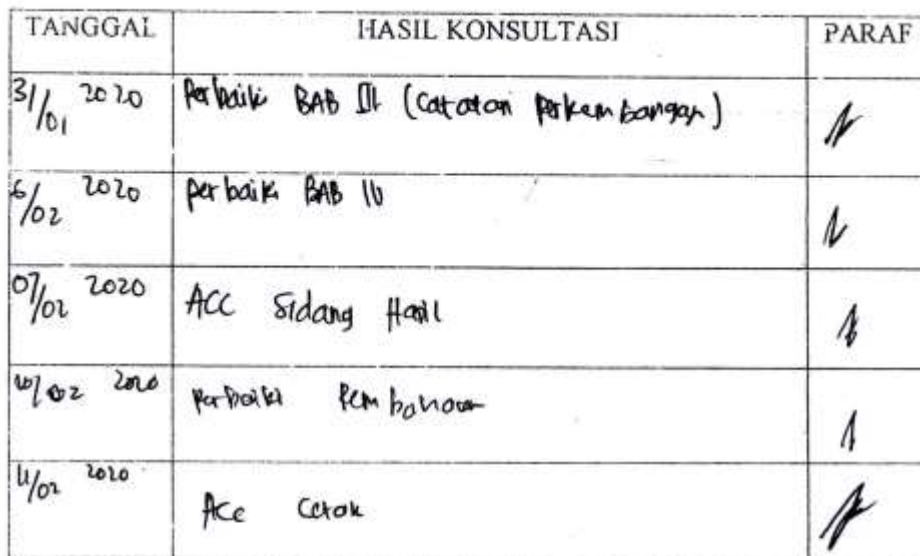 TANGGAL HASIL KONSULTASI PARAF
31/01 2020 Perbaiki BAB III (Catatan Perkembangan)
6/02 2020 perbaiki BAB IV
07/02 2020 ACC Sidang Hasil
10/02 2020 perbaiki Pembahasan
11/02 2020 Acc Cetak